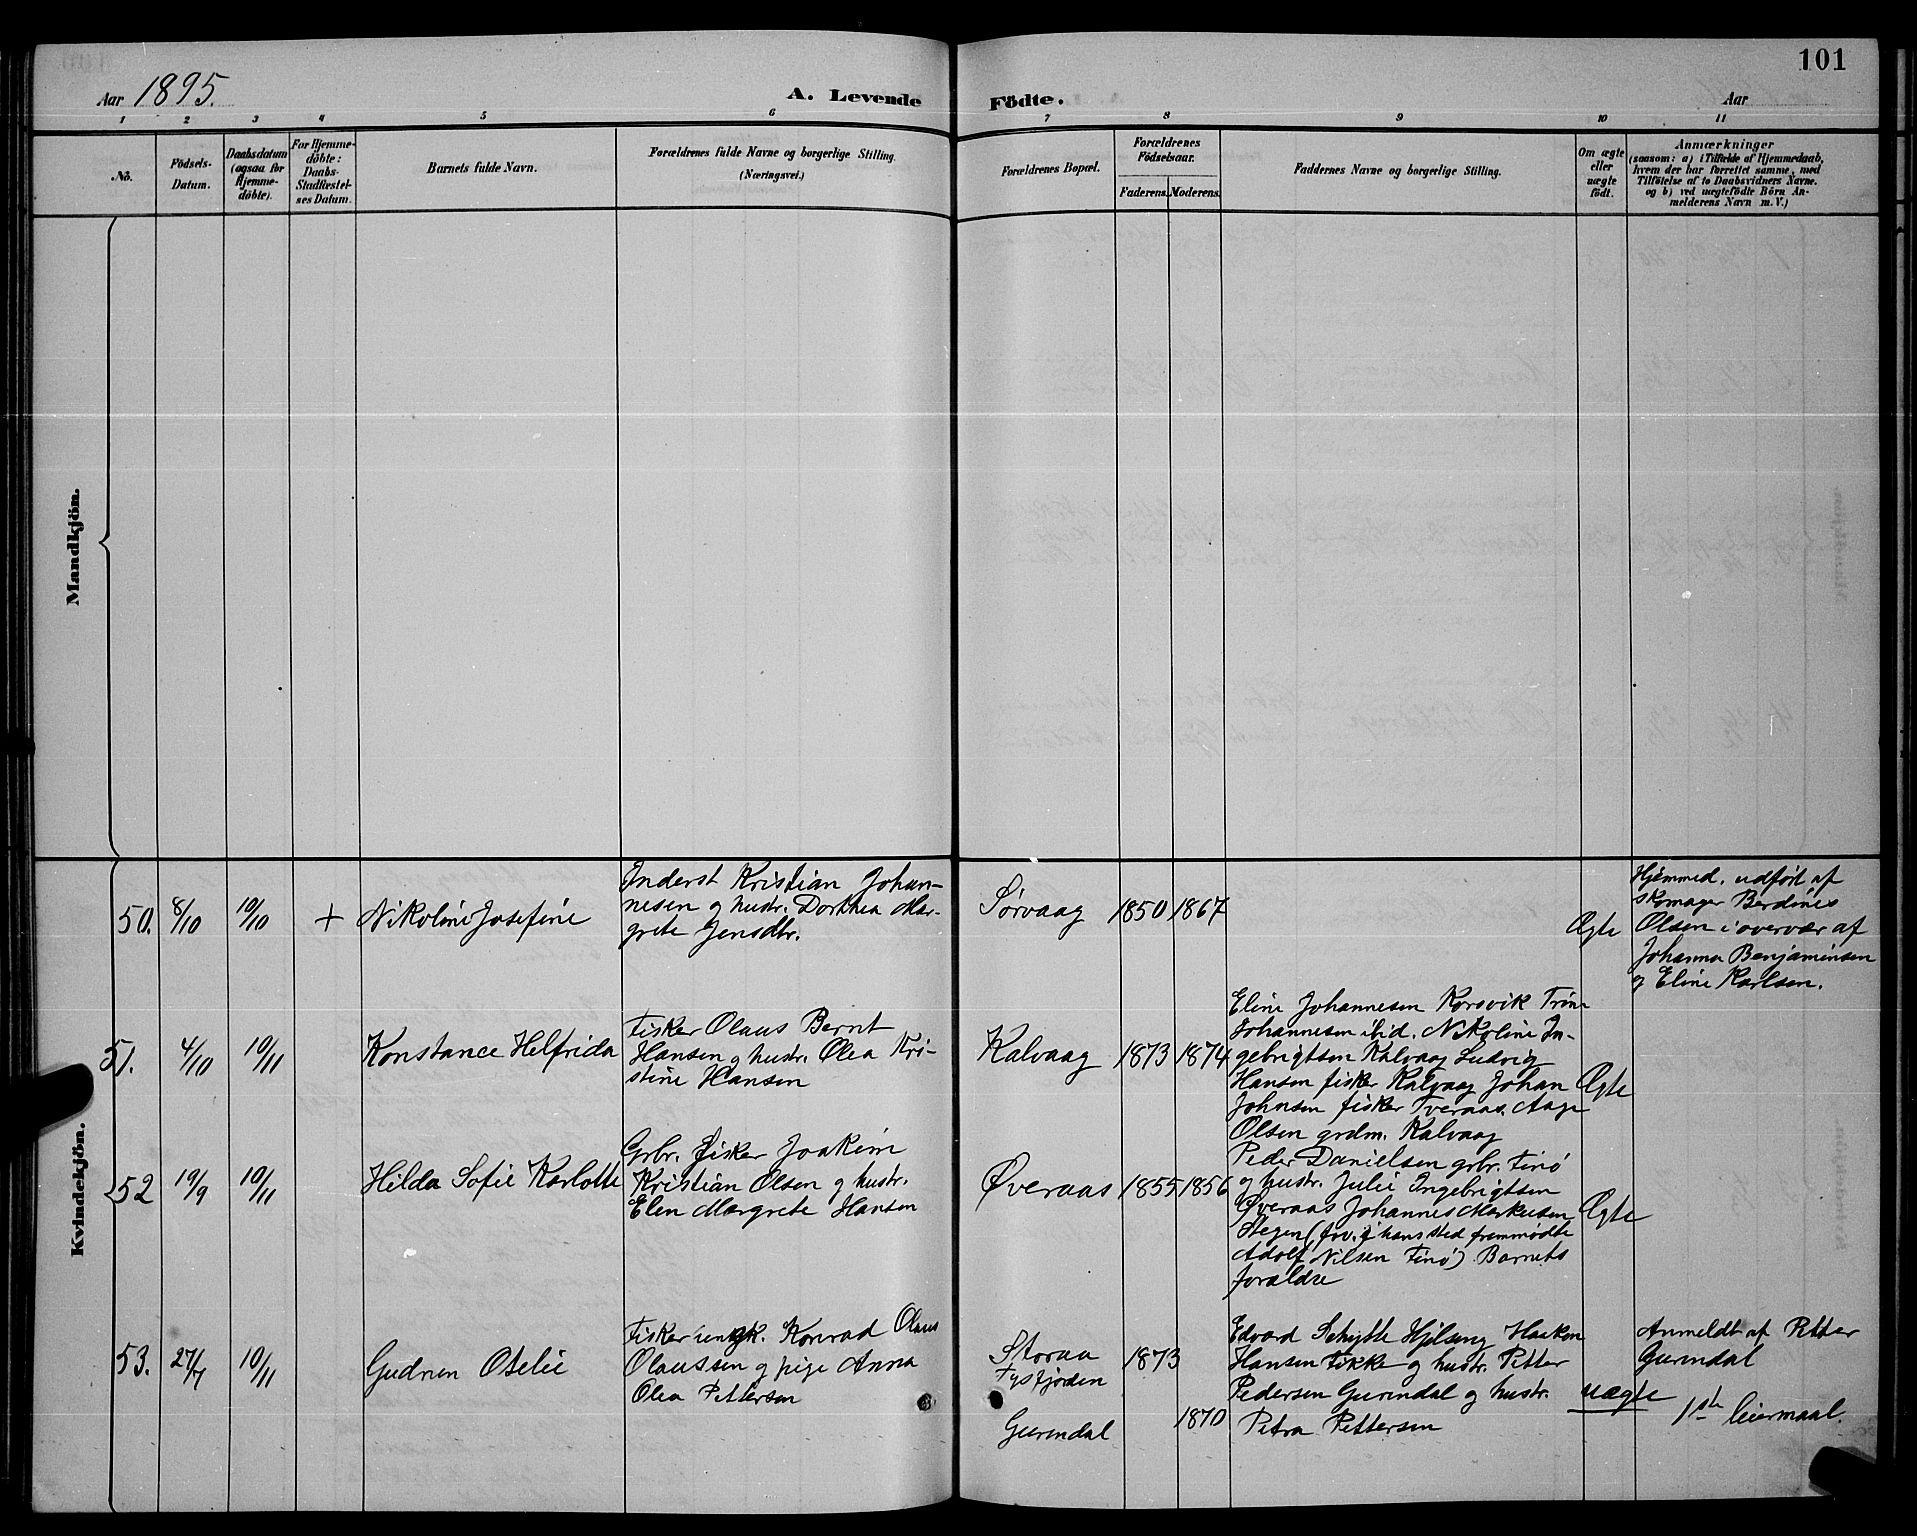 101
Aar 1895.
A. Levende Födte.
Aar
1 2 3 4 5 6 7 8 9 10 11
No.
Födsels-
Datum.
Daabsdatum
(ogsaa for
Hjemme-
döbte).
For Hjemme-
döbte:
Daabs-
Stadfæstel-
ses Datum.
Barnets fulde Navn.
Forældrenes fulde Navne og borgerlige Stilling.
(Næringsvei.)
Forældrenes Bopæl.
Forældrenes
Födselsaar.
Faderens. Moderens.
Faddernes Navne og borgerlige Stilling.
Om ægte
eller
uægte
født.
Anmærkninger
(saasom: a) i Tilfælde af Hjemmedaab,
hvem der har forrettet samme, med
Tilföielse af to Daabsvidners Navne.
og b) ved uægtefödte Börn An-
melderens Navn m. V.)
Mandkjön.
Kvindekjön.
50. 8/10 10/10 + Nikoline Josefine
Inderst Kristian Johan-
nesen og hustr. Dorthea Mar-
grete Jensdtr.
Sørvaag 1850 1867
Ægte
Hjemmed. udført af
Skomager Berdines
Olsen i overvær af
Johanna Benjaminsen
og Eline Karlsen.
51. 4/10 10/11 Konstance Helfrida
Fisker Olaus Bernt
Hansen og hustr. Olea Kri-
stine Hansen
Kalvaag 1873 1874
Eline Johannesen Korsvik Trine
Johannesen ibid. Nikoline In-
gebrigtsen Kalvaag Ludvig
Hansen fisker Kalvaag Johan
Johnsen fisker Tveraas. Aage
Olsen grdm. Kalvaag
Ægte
52 19/9 10/11 Hilda Sofie Karlotte
Grbr. fisker Joakim
Kristian Olsen og hustr.
Elen Margrete Hansen
Øveraas 1855 1856
Peder Danielsen grbr. Finø
og hustr. Julie Ingebrigtsen
Øveraas Johannes Markusen
Stegen (for. i hans sted fremmødte
Adolf Nilsen Finø) Barnets
forældre
Ægte
53. 27/7 10/11 Gudrun Otelie
Fisker ungk. Konrad Olaus
Olaussen og pige Anna
Olea Pettersen
Storaa
Tysfjorden 1873
Gurendal 1870
Edvard Schytte Hjelseng Haakon
Hansen Fikke og hustr. Petter
Pedersen Gurendal og hustr.
Petra Pettersen
uægte
Anmeldt af Petter
Gurendal
1ste leiermaal.